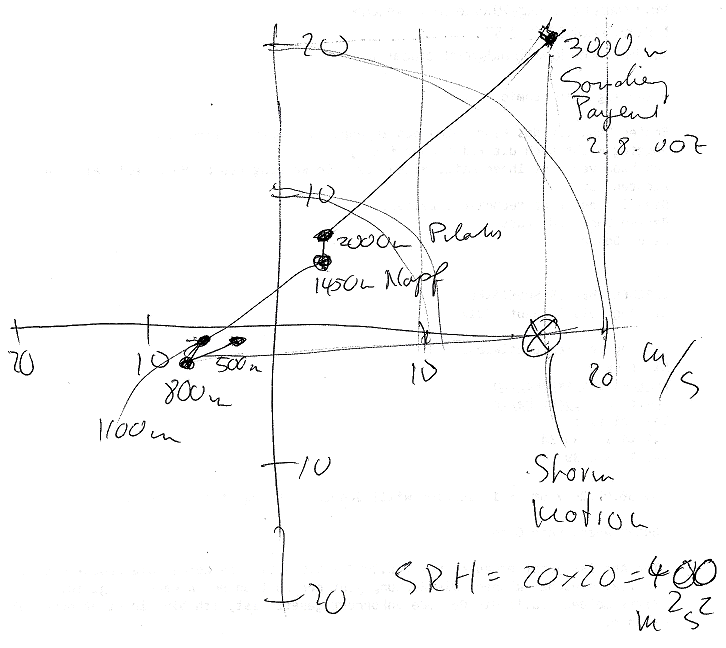 20
3000 m
Sounding
Payern
2.8. 00Z
10
2000m Pilatus
1450m Napf
20
10
500m
10
20
m/s
800m
1100m
10
Storm
motion
20
SRH = 20×20 = 400
m²s²